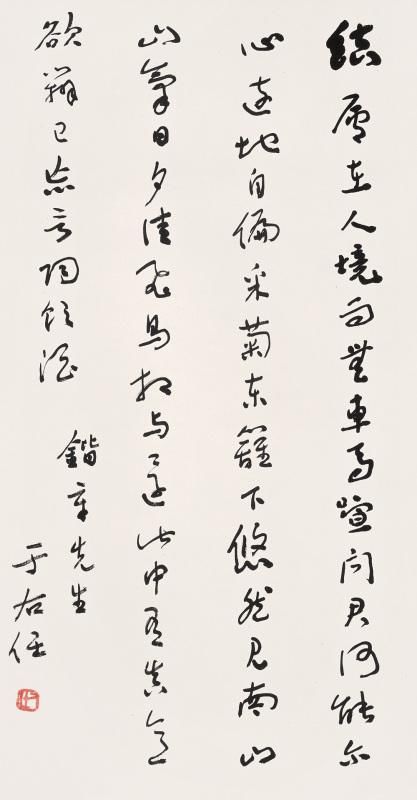 結廬在人境而無車馬喧問君何能尔
心遠地自偏采菊東籬下悠然見南山
山氣日夕佳飛鳥相与還此中有真意
欲辯已忘言陶飲酒
鍇章先生
于右任